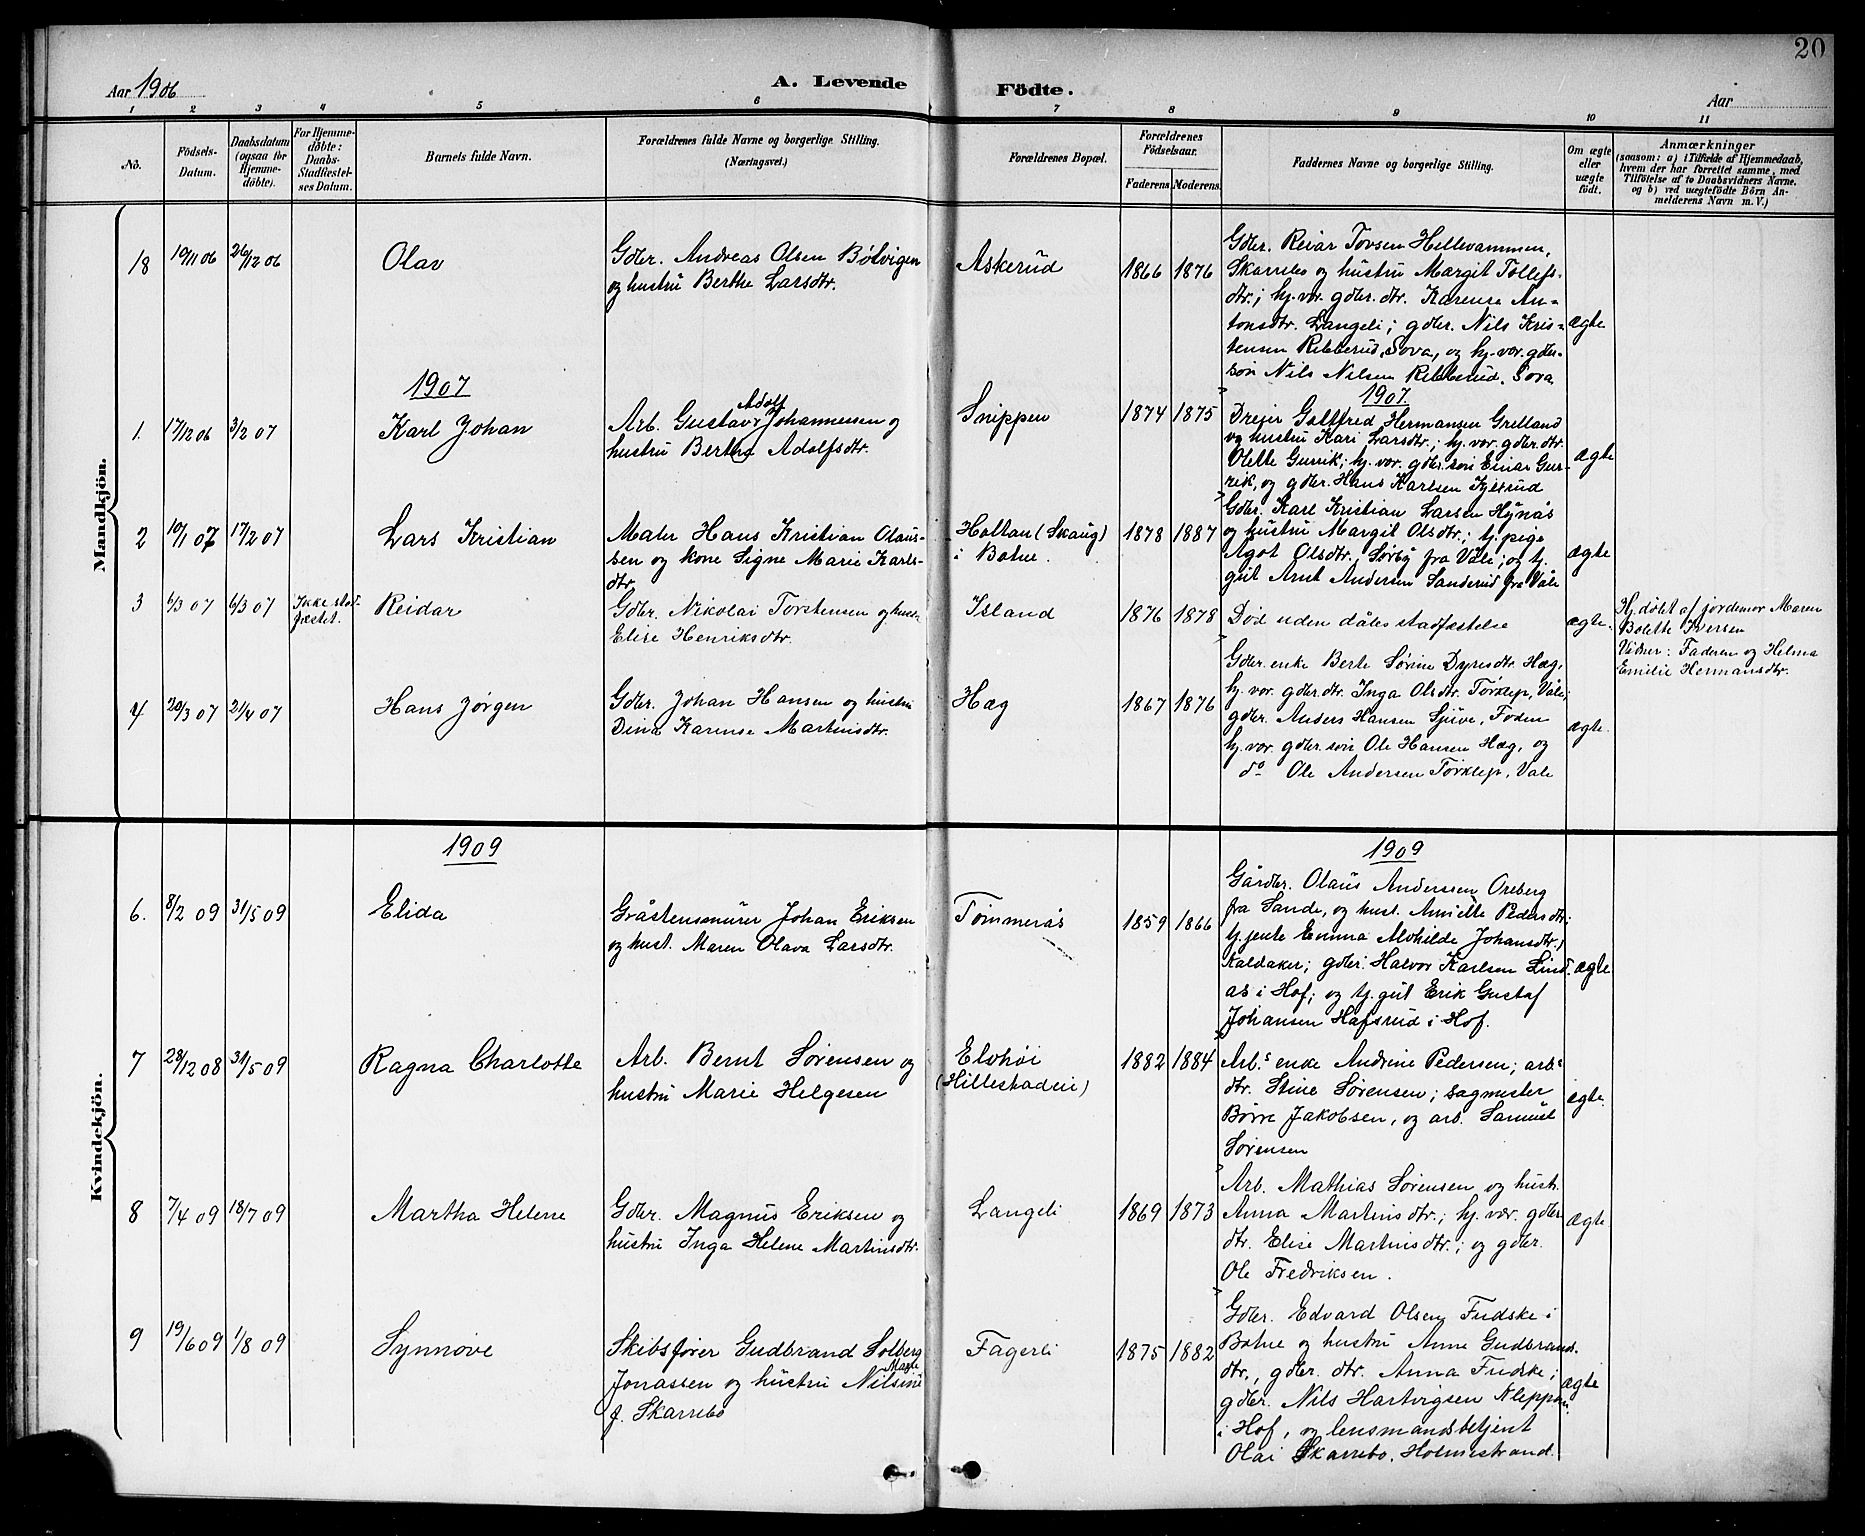 20
Aar 1906
A. Levende Födte.
Aar
1 2 3 4 5 6 7 8 9 10 11
No.
Födsels-Datum.
Daabsdatum (ogsaa for Hjemme-döbte).
For Hjemme-döbte: Daabs-Stadfæstel-ses Datum.
Barnets fulde Navn.
Forældrenes fulde Navne og borgerlige Stilling.
(Næringsvei.)
Forældrenes Bopæl.
Forældrenes Födselsaar.
Faderens. Moderens.
Faddernes Navne og borgerlige Stilling.
Om ægte eller uægte födt.
Anmærkninger
(saasom: a) i Tilfælde af Hjemmedaab,
hvem der har forrettet samme, med
Tilföielse af to Daabsvidners Navne.
og b) ved uægtefödte Börn An-
melderens Navn m. V.)
Mandkjön.
18 19/11 06 26/12 06 Olav
Gdbr. Andreas Olsen Bólvigen
og hustru Berthe Larsdtr.
Askerud 1866 1876
Gdbr. Reiar Tovsen Hellevammen,
Skarrebo og hustru Margit Tollefs-
dtr.; hj. vær. gdbr. dtr. Karense An-
tonsdtr. Langeli; gdbr. Nils Kris-
tensen Ribberud, Sova, og hj. vær. gdbr.
søn Nils Nilsen Ribberud, Sova
ægte
1907
1907
1. 17/12 06 3/2 07 Karl Johan
Arb. Gustav Adolf Johannessen og
hustru Berthe Adolfsdtr.
Snippen 1874 1875
Dreier Gottfred Hermansen Grelland
og hustru Kari Larsdtr.; hj. vær. gdbr. dtr.
Olette Gurrik; hj. vær. gdbr. søn Einar Gur-
rik, og gdbr. Hans Karlsen Kjelsrud
ægte
2 19/1 07 17/2 07 Lars Kristian
Maler Hans Kristian Olaus-
sen og kone Signe Marie Karls-
dtr.
Holtan (Skaug)
i Botne.
1878 1887
Gdbr. Karl Kristian Larsen Hynås
og hustru Margit Olsdtr.; tj. pige
Agot Olsdtr. Sørby fra Våle; og tj.
gut Arnt Andersen Sanderud fra Våle
ægte
3 6/3 07 6/3 07 Ikke stad-
fæstet.
Reidar
Gdbr. Nikolai Torstensen og hustr.
Elise Henriksdtr.
Island 1876 1878
Død uden dåbs stadfæstelse
ægte.
Hj. døbt af jordemor Maren
Bolette Iversen
Vidner: Faderen og Helma
Emilie Hermansdtr.
4 20/3 07 21/4 07 Hans Jørgen
Gdbr. Johan Hansen og hustru
Dina Karense Martinsdtr.
Hæg 1867 1876
Gdbr. enke Berte Sørine Dyresdtr. Hæg,
hj. vær. gdbr. dtr. Inga Olsdtr. Tørklep, Våle;
gdbr. Anders Hansen Sjuve, Foden
hj. vær. gdbr. søn Ole Hansen Hæg, og
do Ole Andersen Tørklep, Våle
ægte.
Kvindekjön.
1909
1909
6. 8/2 09 31/5 09 Elida
Gråstensmurer Johan Eriksen
og hust. Maren Olava Larsdtr.
Tømmerås 1859 1866
Gårdbr. Olaus Anderssen Oreberg
fra Sande, og hust. Annette Pedersdtr.;
tj. jente Emma Alvhilde Johansdtr.
Kaldaker; gdbr. Halvor Karlsen Lind-
ås i Hof; og tj. gut Erik Gustaf
Johansen Hafsrud i Hof.
ægte
7 28/12 08 31/5 09 Ragna Charlotte
Arb. Bernt Sørensen og
hustru Marie Helgesen
Elvhøi
(Hillestadeie)
1882 1884
Arb.s enke Andrine Pedersen; arb.s
dtr. Stine Sørensen; sagmester
Børre Jakobsen, og arb. Samuel
Sørensen
ægte.
8 7/4 09 18/7 09 Martha Helene
Gdbr. Magnus Eriksen og
hustru Inga Helene Martinsdtr.
Langeli 1869 1873
Arb. Mathias Sørensen og hustr.
Anna Martinsdtr.; hj. vær. gdbr.
dtr. Elise Martinsdtr.; og gdbr.
Ole Fredriksen.
ægte
9 19/6 09 1/8 09 Synnøve
Skibsfører Gudbrand Solberg
Jonassen og hustru Nilsine Marie
f. Skarrebo
Fagerli 1875 1882
Gdbr. Edvard Olsen Fudske i
Botne og hustru Anne Gudbrands-
dtr., gdbr. dtr. Anna Fudske;
gdbr. Nils Hartvigsen Kleppan
i Hof, og lensmandsbetjent
Olai Skarrebo, Holmestrand.
ægte